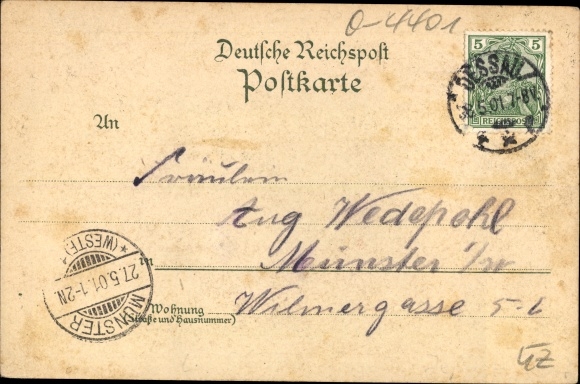 O-4401
Deutsche Reichspost
Postkarte
5 5
REICHSPOST
DESSAU
5.01.7-8V.
An
Fräulein
Aug Wedepohl
in Münster i/w
Wohnung Wilmergasse 5-6
(Straße und Hausnummer)
MÜNSTER
(WESTF.)
27.5.01.1-2N.